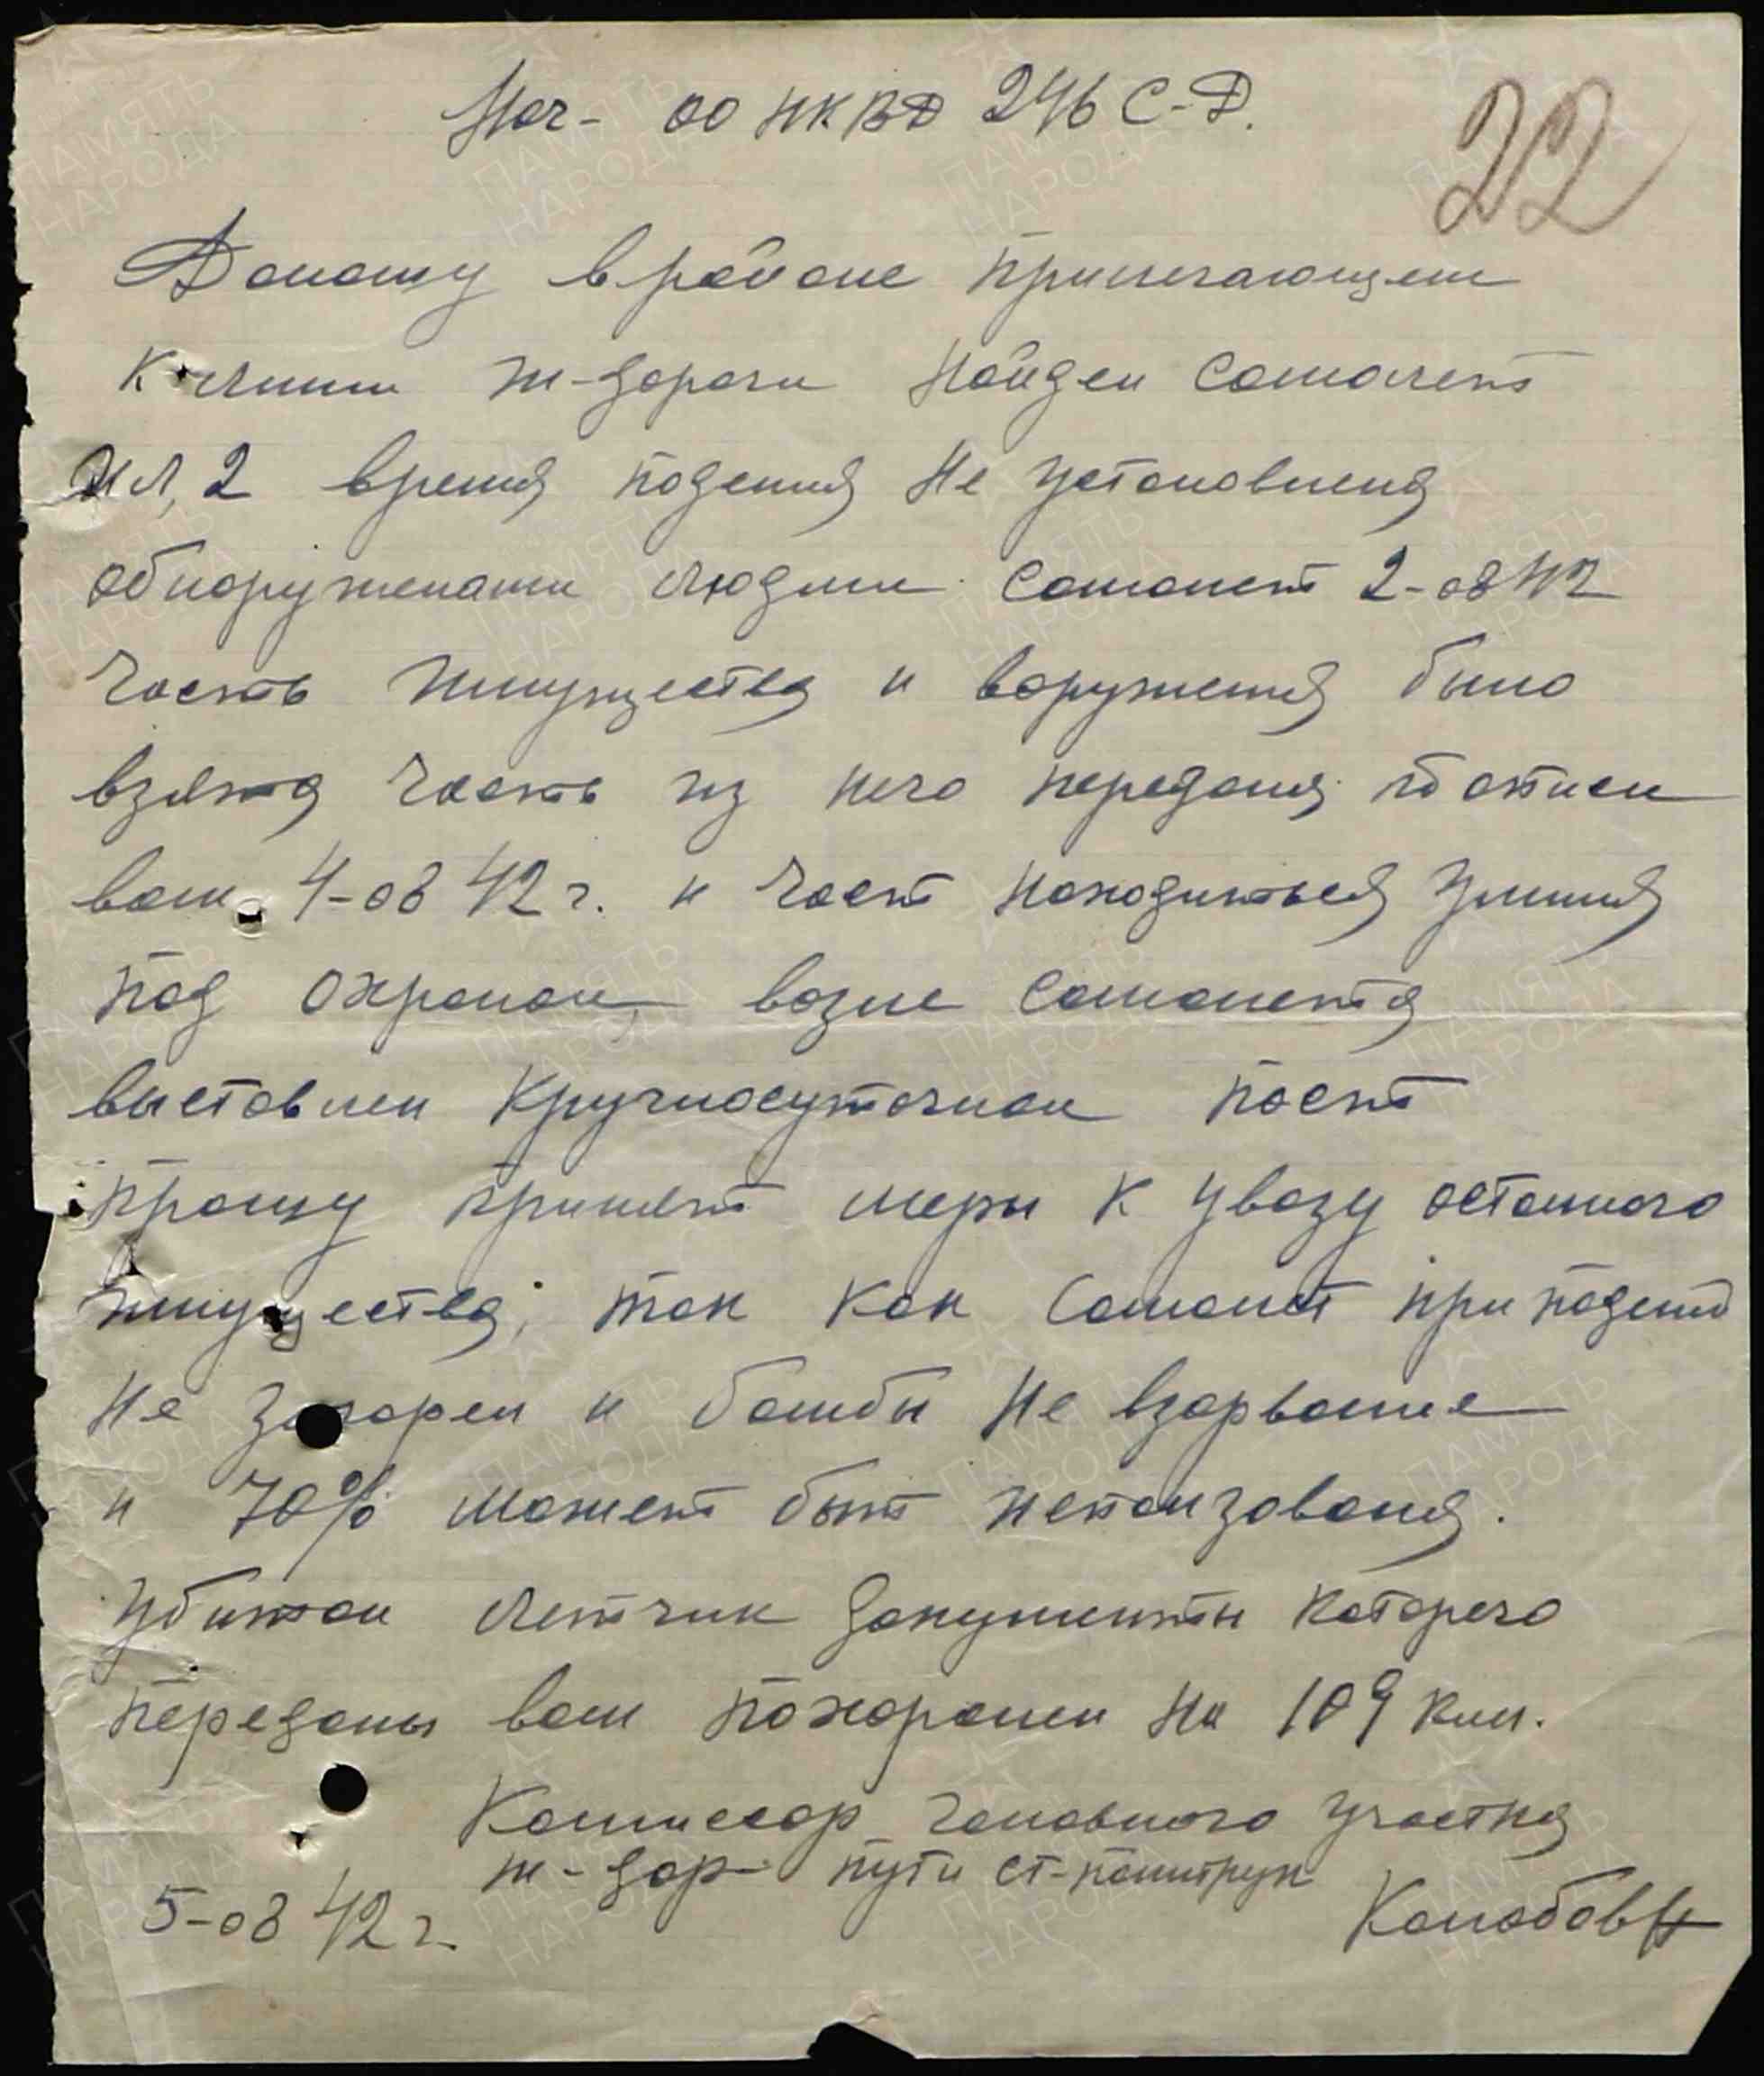 Нач- ОО НКВД 246 С-Д.
22
Доношу в районе прилегающем
к линии ж-дороги найден самолет
ИЛ, 2 время подения не установлена
обноруженами людми самолет 2-08 42
часть имущества и воружения было
взята часть из него передана
вам 4-08 42 г. и част находиться уменя
под охраной возле самолета
выставлен кругносуточной пост
прошу принят меры к увозу осталного
имущества, так как самолет при подении
не загорел и бомбы не взорваные
и 70% может быт исползована.
убитой летчик документы которого
переданы вам похоронен на 109 клм.
Комиссар головного участка
ж-дор пути ст-политрук
5-08 42 г.